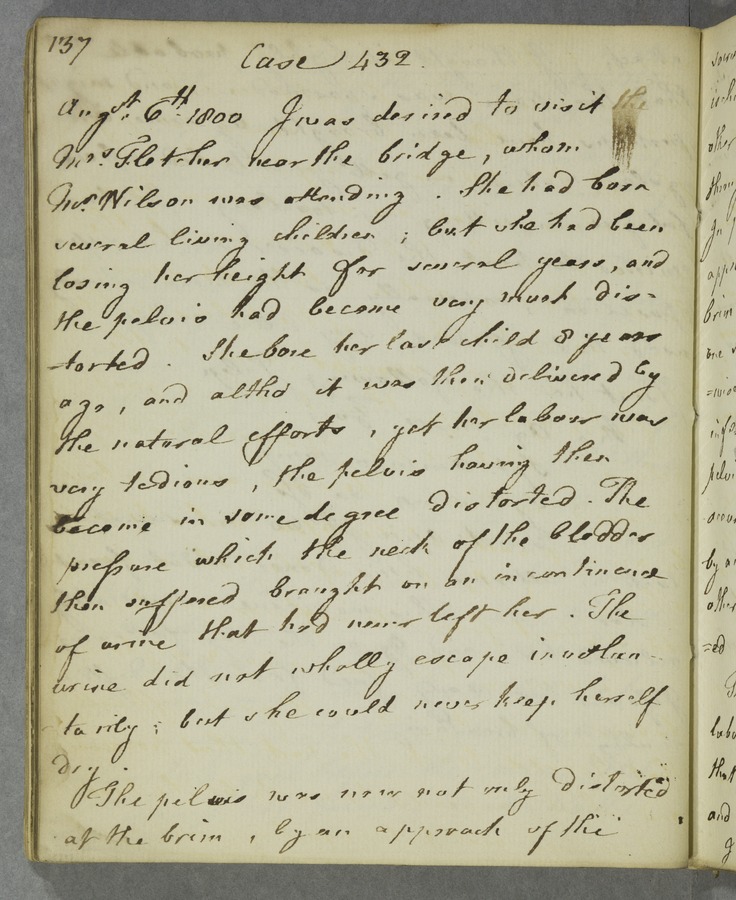 137
Case 432.
Augst. 6th. 1800 I was desired to visit the
Mrs Fletcher near the bridge, whom
Mr. Wilson was attending. She had born
several living children; but she had been
losing her height for several years, and
the pelvis had become very much dis-
-torted. She bore her last child 8 years
ago, and altho' it was then delivered by
the natural efforts, yet her labour was
very tedious, the pelvis having then
become in some degree distorted. The
pressure which the neck of the bladder
then suffered brought on an incontinence
of urine that had never left her. The
urine did not wholly escape involun-
-tarily; but she could never keep herself
dry.
The pelvis was now not only distorted
at the brim, by an approach of the